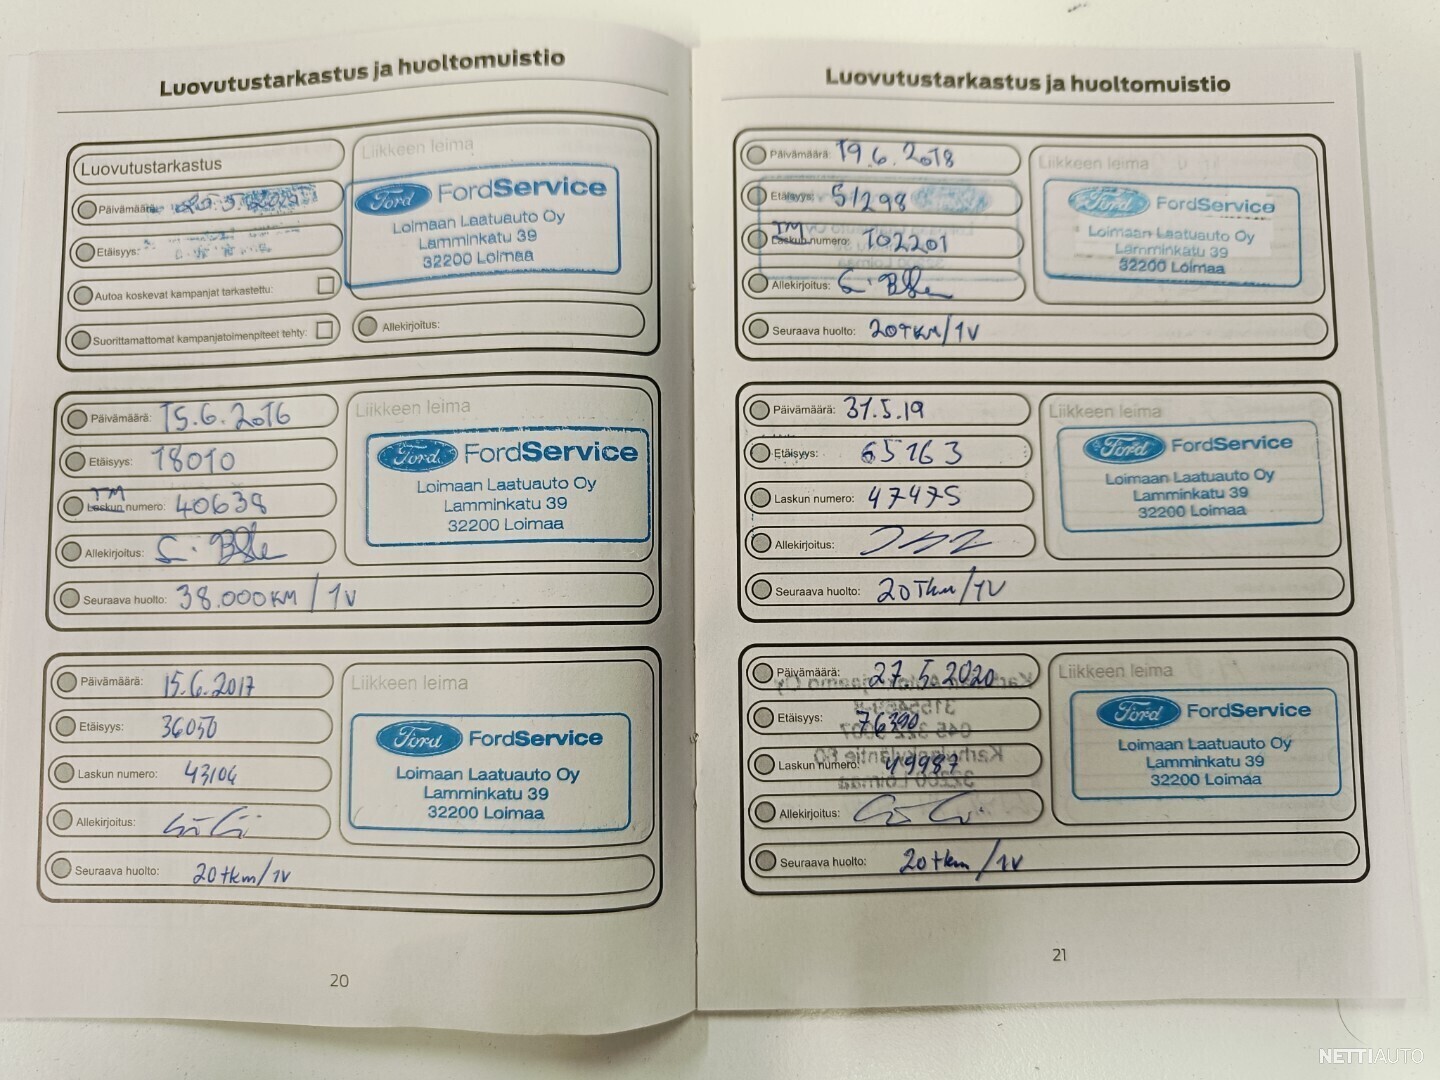 Luovutustarkastus ja huoltomuistio
Luovutustarkastus
Liikkeen leima
Päivämäärä:
Etäisyys:
Autoa koskevat kampanjat tarkastettu:
Suorittamattomat kampanjatoimenpiteet tehty:
Ford FordService
Loimaan Laatuauto Oy
Lamminkatu 39
32200 Loimaa
Allekirjoitus:
Päivämäärä: 15.6.2016
Etäisyys: 18010
TM
Laskun numero: 40638
Allekirjoitus:
Seuraava huolto: 38.000KM / 1V
Liikkeen leima
Ford FordService
Loimaan Laatuauto Oy
Lamminkatu 39
32200 Loimaa
Päivämäärä: 15.6.2017
Etäisyys: 36050
Laskun numero: 43106
Allekirjoitus:
Seuraava huolto: 20tkm/1V
Liikkeen leima
Ford FordService
Loimaan Laatuauto Oy
Lamminkatu 39
32200 Loimaa
20
Luovutustarkastus ja huoltomuistio
Päivämäärä: 19.6.2018
Etäisyys: 51298
TM
Laskun numero: 102201
Allekirjoitus:
Seuraava huolto: 20TKM/1V
Liikkeen leima
Ford FordService
Loimaan Laatuauto Oy
Lamminkatu 39
32200 Loimaa
Päivämäärä: 31.5.19
Etäisyys: 65163
Laskun numero: 47475
Allekirjoitus:
Seuraava huolto: 20Tkm/1V
Liikkeen leima
Ford FordService
Loimaan Laatuauto Oy
Lamminkatu 39
32200 Loimaa
Päivämäärä: 27.5.2020
Etäisyys: 76390
Laskun numero: 49987
Allekirjoitus:
Seuraava huolto: 20tkm/1V
Liikkeen leima
Ford FordService
Loimaan Laatuauto Oy
Lamminkatu 39
32200 Loimaa
21
NETTIAUTO